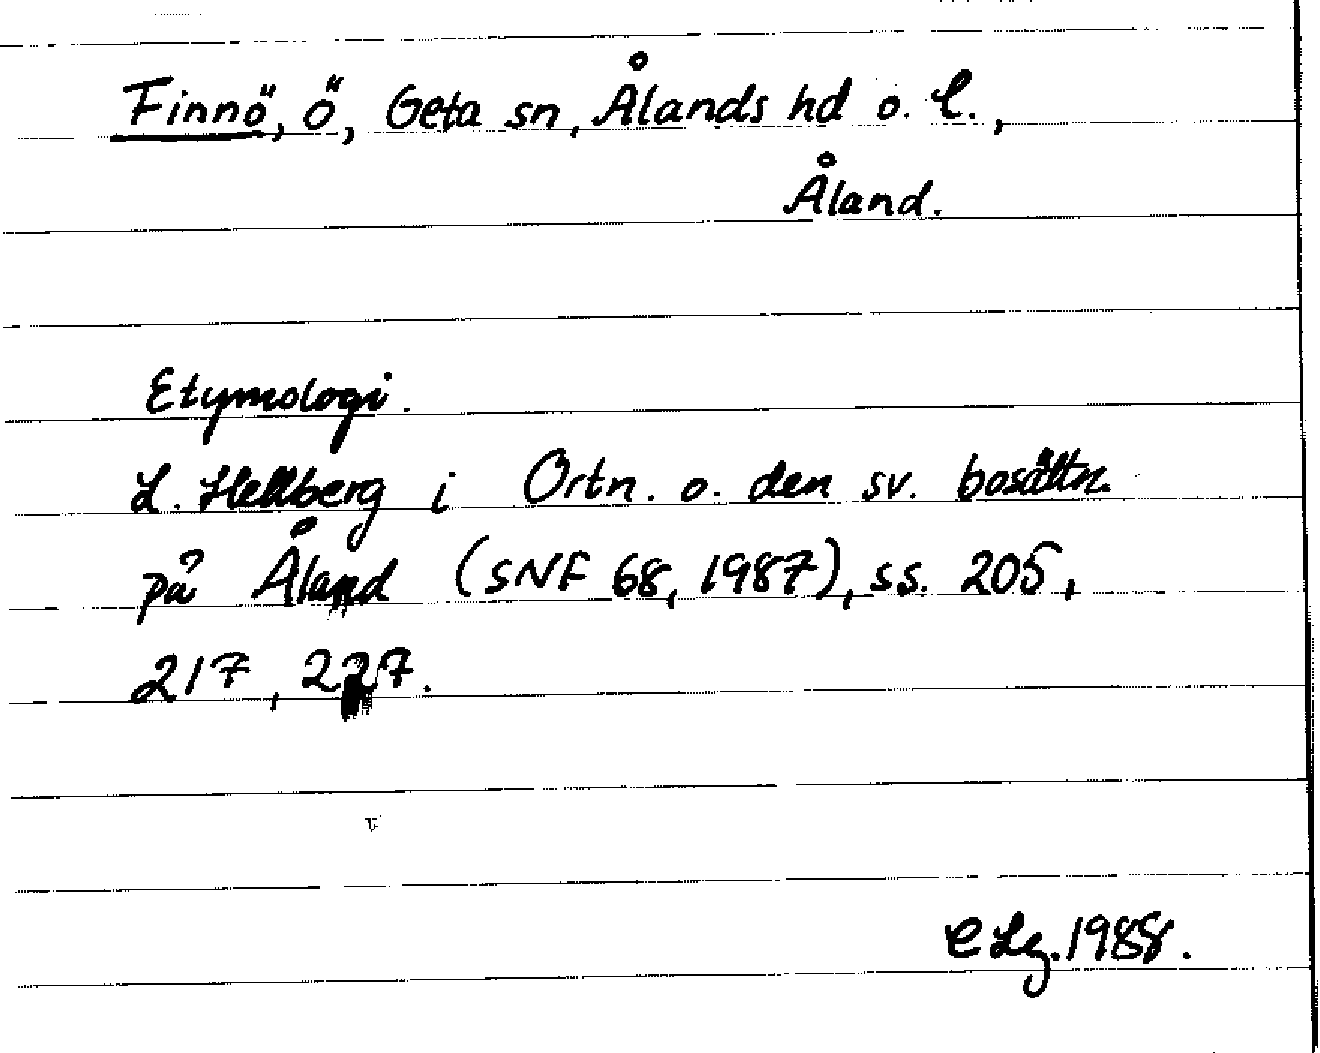 Finnö, ö, Geta sn, Ålands hd o. l.,
Åland.
Etymologi.
L. Hellberg i Ortn. o. den sv. bosättn.
på Åland (SNF 68, 1987), ss. 205,
217, 227.
C Lg. 1988.